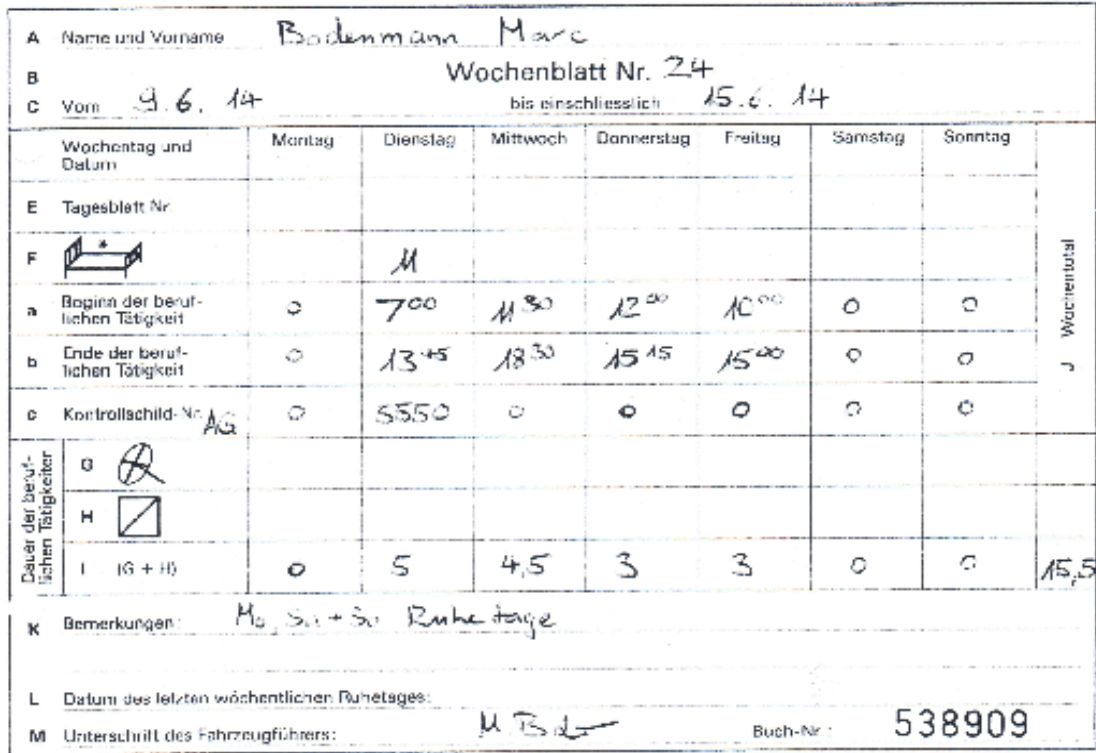 A Name und Vorname Bodenmann Marc
B Wochenblatt Nr. 24
C Vom 9.6.14 bis einschliesslich 15.6.14
Wochentag und Datum Montag Dienstag Mittwoch Donnerstag Freitag Samstag Sonntag
E Tagesblatt Nr.
F 11
a Beginn der beruflichen Tätigkeit 0 7 00 11 30 12 00 10 00 0 0
b Ende der beruflichen Tätigkeit 0 13 45 18 30 15 15 15 00 0 0
J Wochentotal
c Kontrollschild-Nr. AG 0 5550 0 0 0 0 0
Dauer der beruflichen Tätigkeiten
G
H
I (G + H) 0 5 4,5 3 3 0 0 15,5
K Bemerkungen: Mo, Sa + So Ruhetage
L Datum des letzten wöchentlichen Ruhetages:
M Unterschrift des Fahrzeugführers: Buch-Nr.: 538909